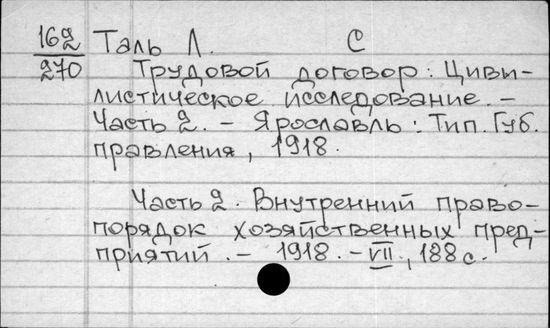 162 Таль Л. С
270 Трудовой договор: Циви-
листическое исследование. –
Часть 2. – Ярославль: Тип. Губ.
правления, 1918.
Часть 2. Внутренний право-
порядок хозяйственных пред-
приятий. – 1918. – VII, 188 с.